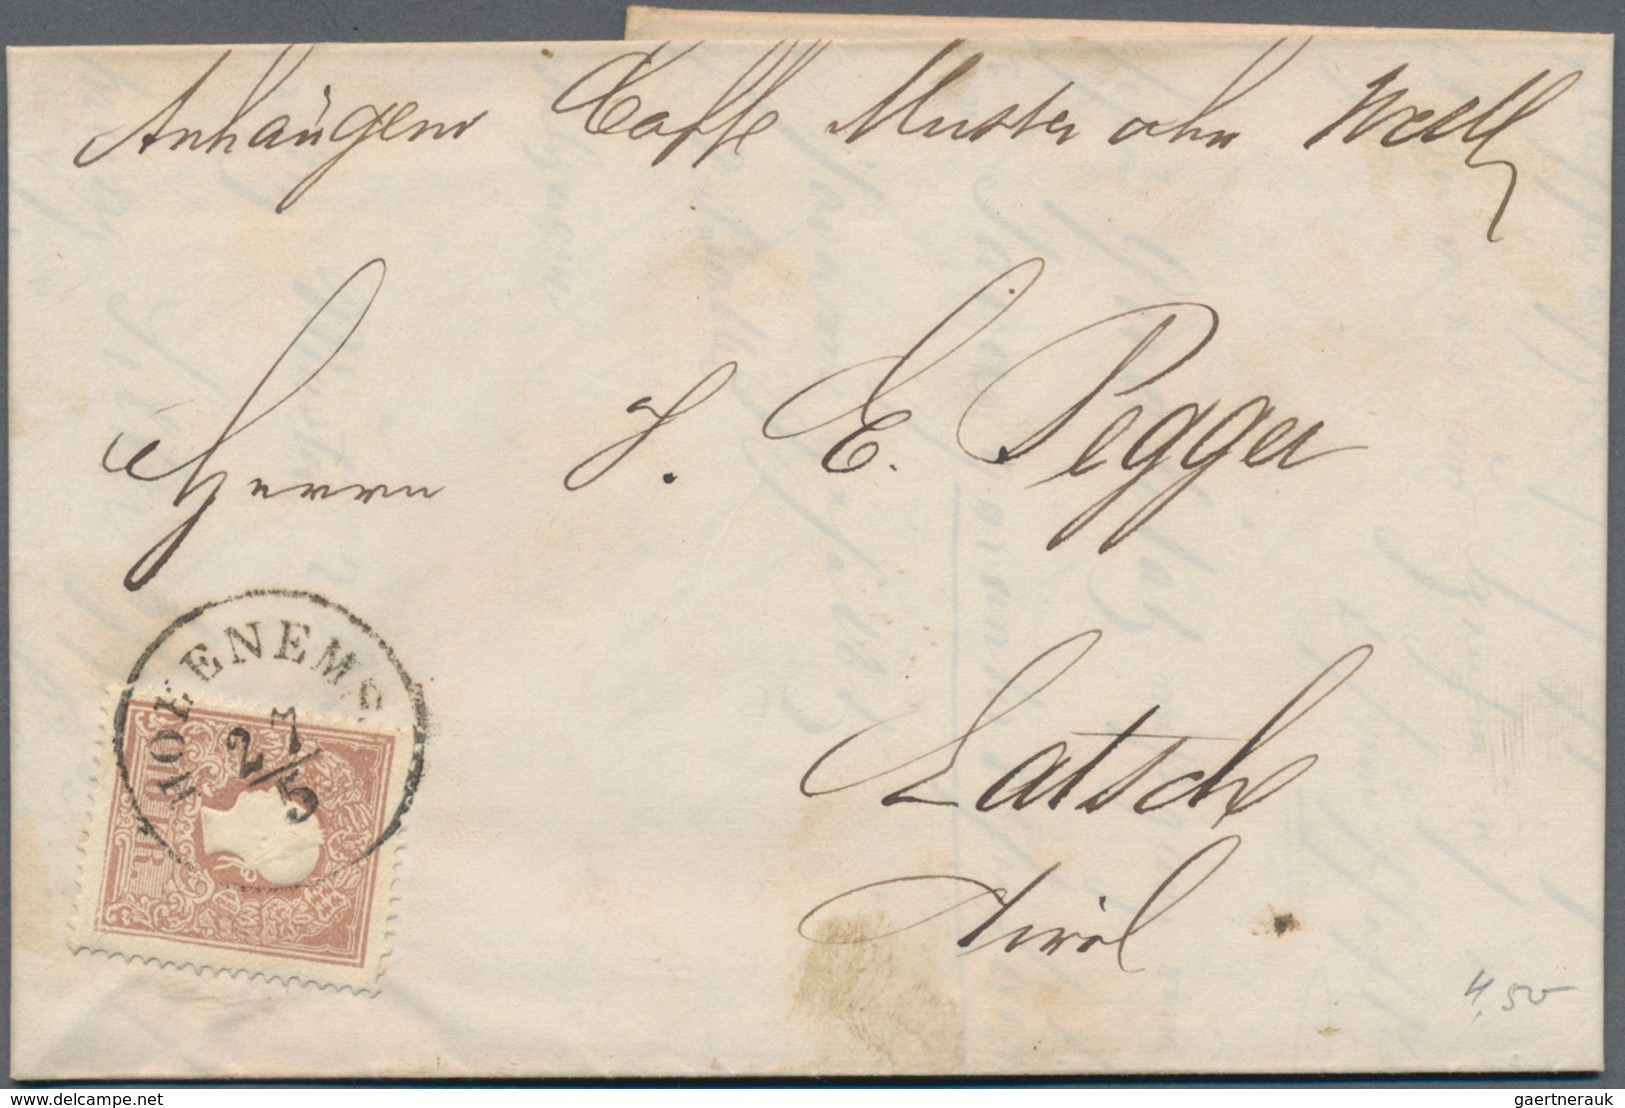 Anhängend Caffe Muster ohne Werth
Herrn J. E. Pegger
Latsch
Tirol
HOHENEMS
27/5
10 KR
4,50
delcampe.net
gaertnerauk